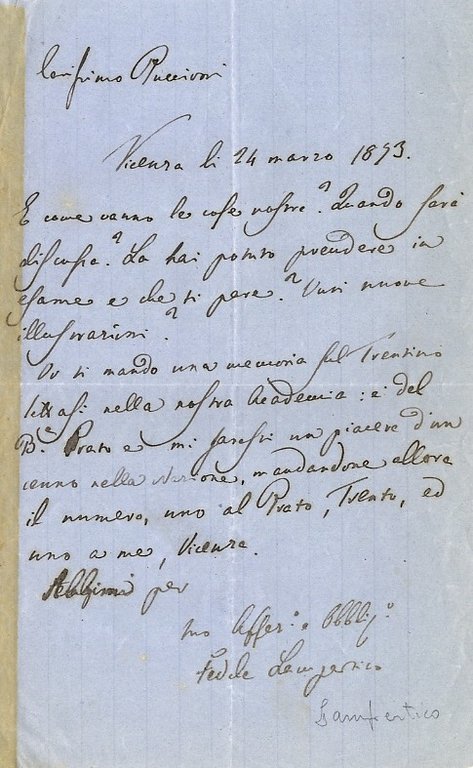 Carissimo Puccioni
Vicenza li 24 marzo 1873.
E come vanno le cose nostre? Quando sarà
discussa? La hai potuto prendere in
esame e che ti pare? Vuoi nuove
illustrazioni?
Or ti mando una memoria sul Trentino
lettasi nella nostra Accademia: è del
B.e Prato e mi faresti un piacere d'un
cenno nella Nazione, mandandone allora
il numero, uno al Prato, Trento, ed
uno a me, Vicenza.
Abbimi per
tuo Affez.o e Obblig.o
Fedele Lampertico
Lampertico